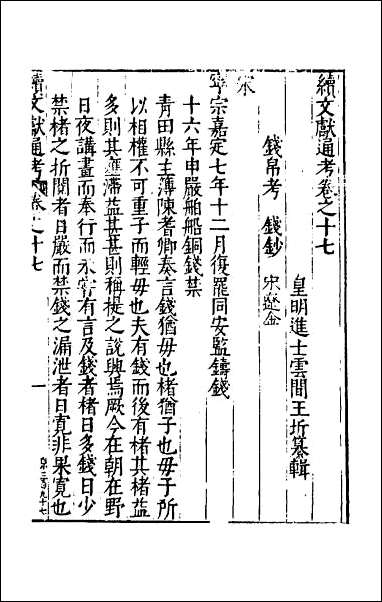 續文獻通考卷之十七
皇明進士雲間王圻纂輯
錢帛考 錢鈔 宋遼金
宋
寧宗嘉定七年十二月復罷同安監鑄錢
十六年申嚴舶船銅錢禁
青田縣主簿陳耆卿奏言錢猶母也楮猶子也母子所
以相權不可重子而輕母也夫有錢而後有楮其楮益
多則其壅滯益甚甚則稱提之說興焉厥今在朝在野
日夜講畫而奉行而未嘗有言及錢者楮日多錢日少
禁楮之折閱者日嚴而禁錢之漏泄者日寬非果寬也
續文獻通考 卷之十七
一